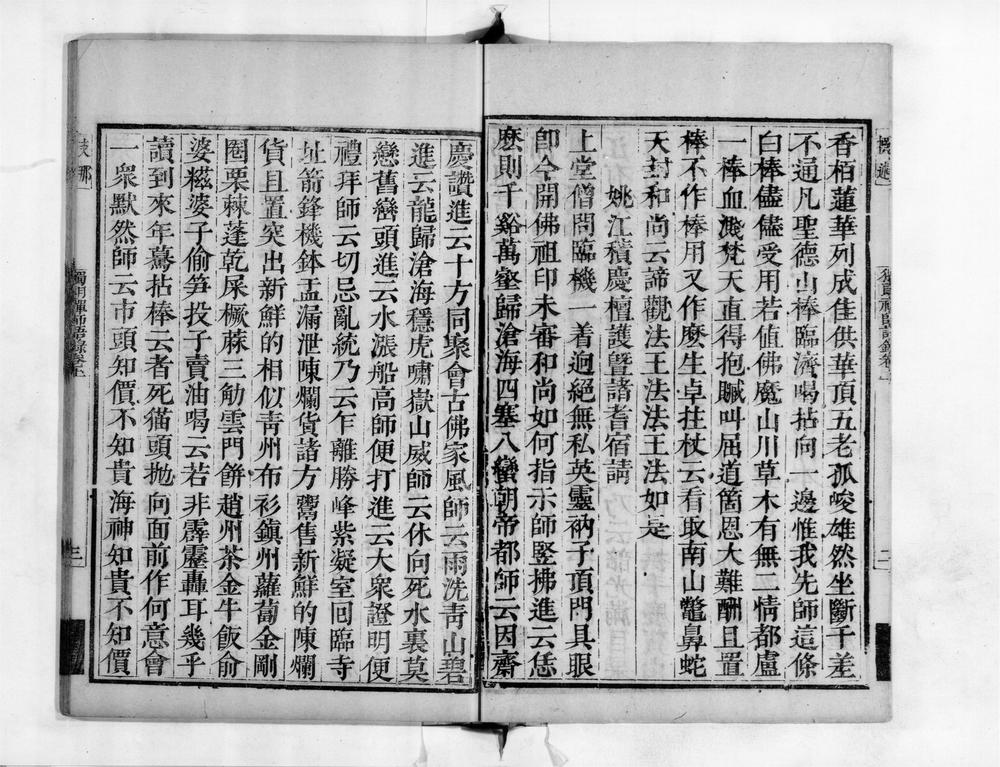 香栢蓮華列成佳供華頂五老孤峻雄然坐斷千差
不通凡聖德山棒臨濟喝拈向一邊惟我先師這條
白棒儘儘受用若值佛魔山川草木有無二情都盧
一棒血濺梵天直得抱贓叫屈道箇恩大難酬且置
棒不作棒用又作麼生卓拄杖云看取南山鼈鼻蛇
天封和尚云諦觀法王法法王法如是
姚江積慶檀護暨諸耆宿請
上堂僧問臨機一着逈絕無私英靈衲子頂門具眼
卽今開佛祖印未審和尚如何指示師竪拂進云恁
麽則千谿萬壑歸滄海四塞八蠻朝帝都師云因齋
慶讚進云十方同聚會古佛家風師云雨洗青山碧
進云龍歸滄海穩虎嘯嶽山威師云休向死水裏莫
戀舊巒頭進云水漲船高師便打進云大衆證明便
禮拜師云切忌亂統乃云乍離勝峰紫凝室回臨寺
址箭鋒機鉢盂漏泄陳爛貨諸方鬻售新鮮的陳爛
貨且置突出新鮮的相似青州布衫鎭州蘿蔔金剛
圈栗棘蓬乾屎橛蔴三觔雲門餅趙州茶金牛飯俞
婆糍婆子偷笋投子賣油喝云若非霹靂轟耳幾乎
讀到來年驀拈棒云者死猫頭抛向面前作何意會
一衆默然師云市頭知價不知貴海神知貴不知價
二
三